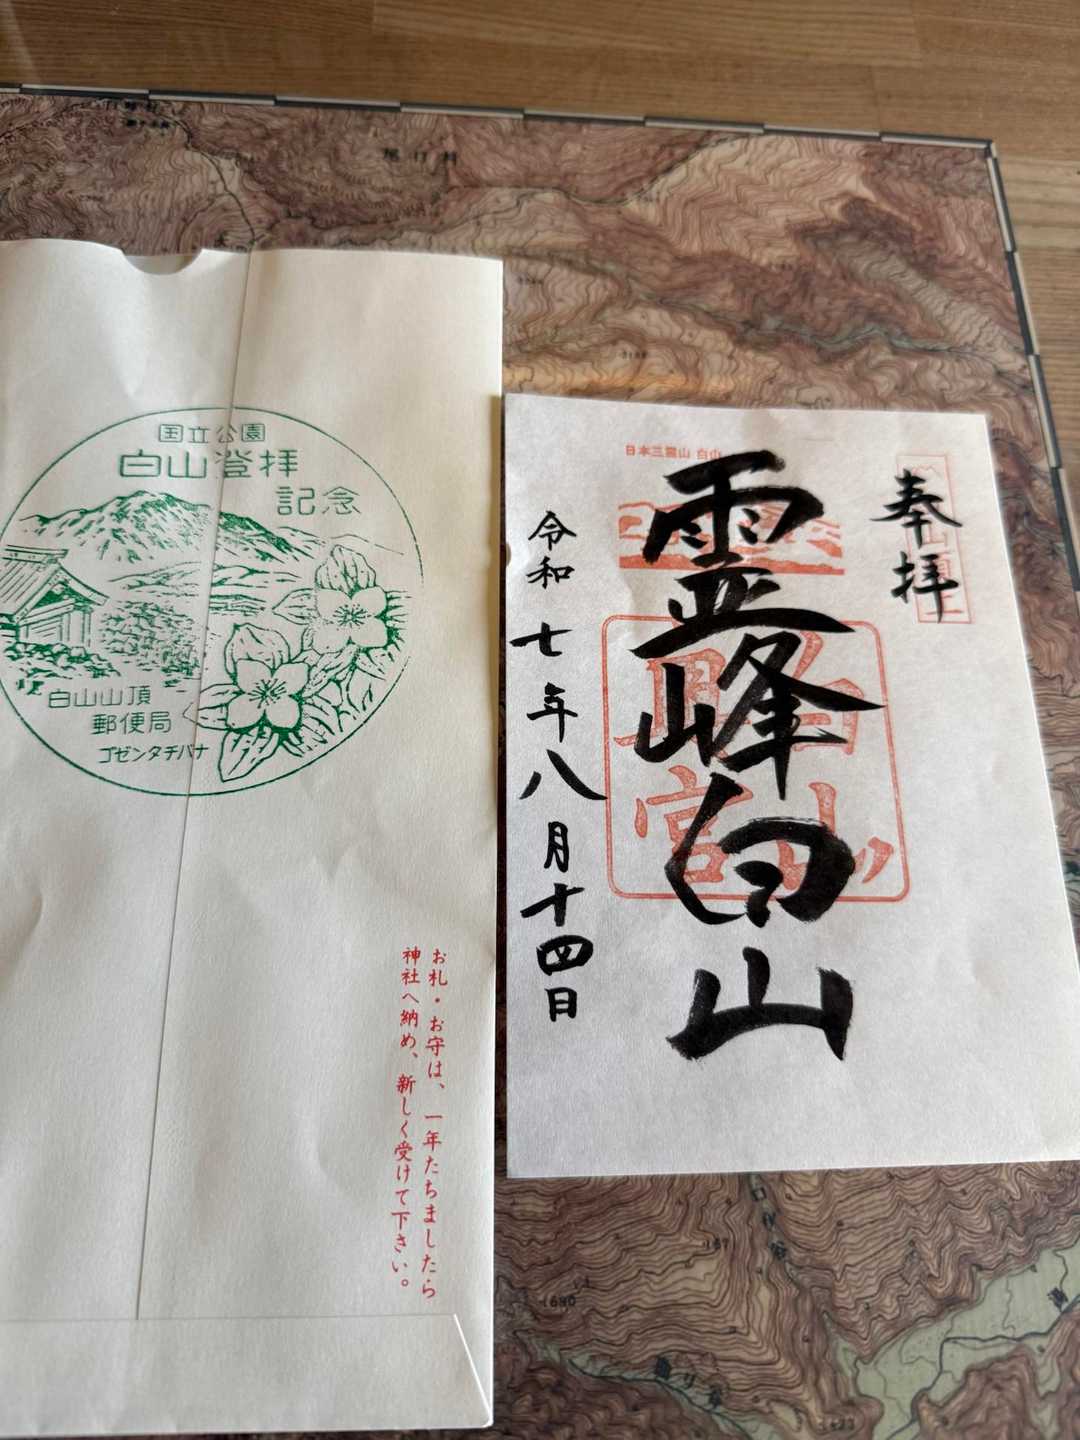 尾口村
国立公園
白山登拝
記念
白山山頂
郵便局
ゴゼンタチバナ
お札・お守は、一年たちましたら
神社へ納め、新しく受けて下さい。
奉拝
日本三霊山 白山
霊峰白山
令和七年八月十四日
1680